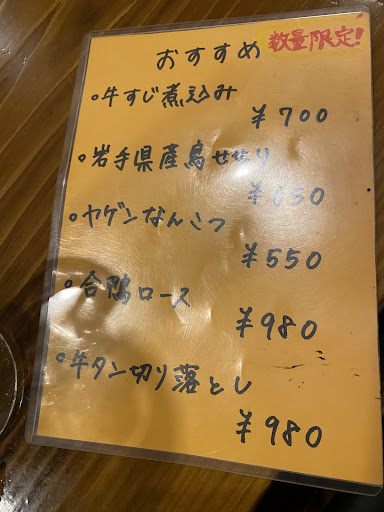 おすすめ 数量限定!
○牛すじ煮込み
¥700
○岩手県産鳥せせり
¥650
○ヤゲンなんこつ
¥550
○合鴨ロース
¥980
○牛タン切り落とし
¥980